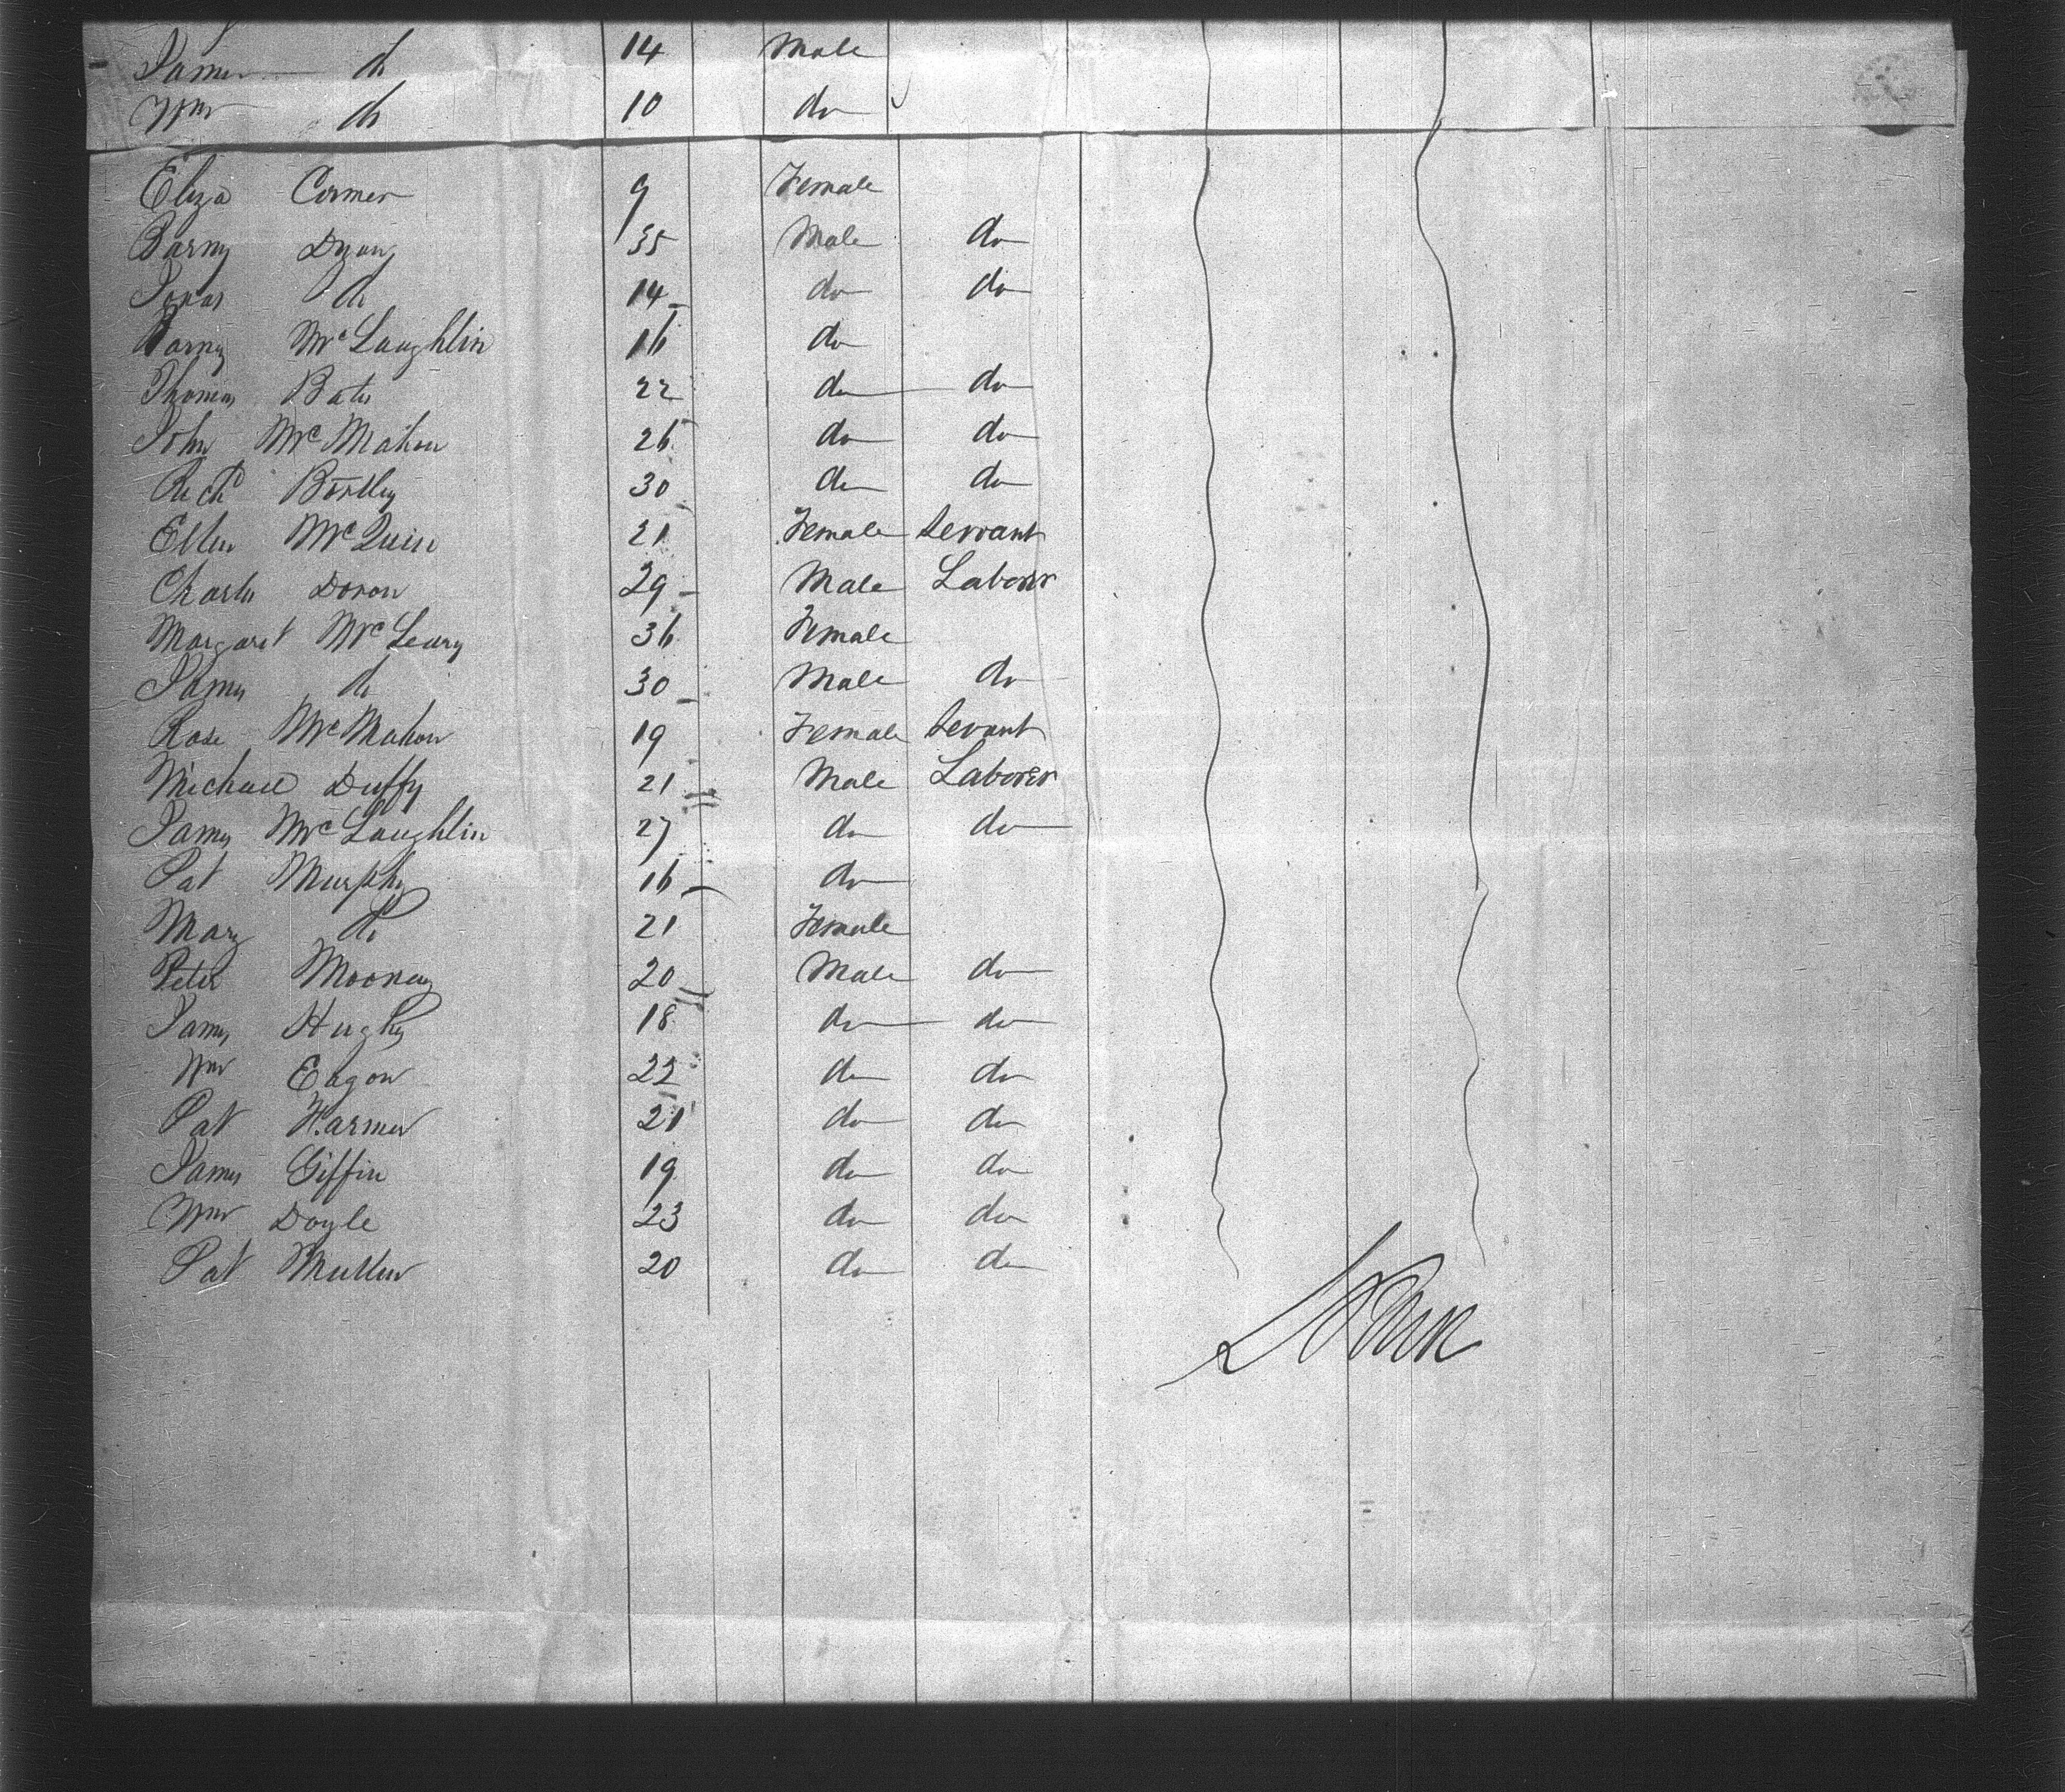 James do 14 Male
Wm do 10 do
Eliza Cormer 9 Female
Barny Dyon 35 Male do
Jonas do 14 do do
Barny McLaughlin 16 do
Thomas Bates 22 do do
John McMahon 26 do do
Richd 30 do do
Ellen McQuin 21 Female Servant
Charles Doron 29 Male Laborer
Margaret McLeary 36 Female
James do 30 Male do
Rose McMahon 19 Female Servant
Michael Duffy 21 Male Laborer
James McLaughlin 27 do do
Pat Murphy 16 do
Mary do 21 Female
Peter Mooney 20 Male do
James Hughs 18 do do
Wm Eagon 22 do do
Pat Harmer 21 do do
James Giffin 19 do do
Wm Doyle 23 do do
Pat Mullen 20 do do